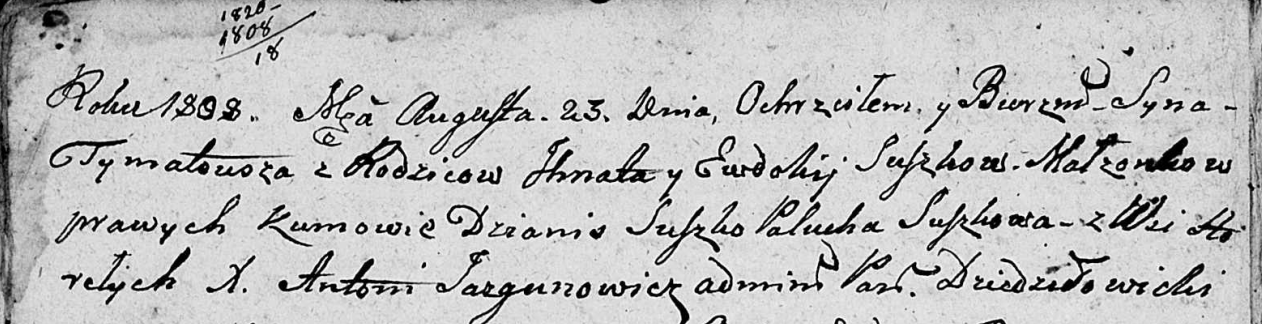 1820-
1808
18
Roku 1808. Mca Augusta. 23. Dnia, Ochrzciłem. y Bierzm. Syna-
Tymateusza z Rodzicow Ihnata y Ewdokij Suszkow. Małzonkow
prawych Kumowie Dzianis Suszko Palucha Suszkowa - z Wsi Ho
rełych X. Antoni Jazgunowicz admin Par. Dziedziłowicki